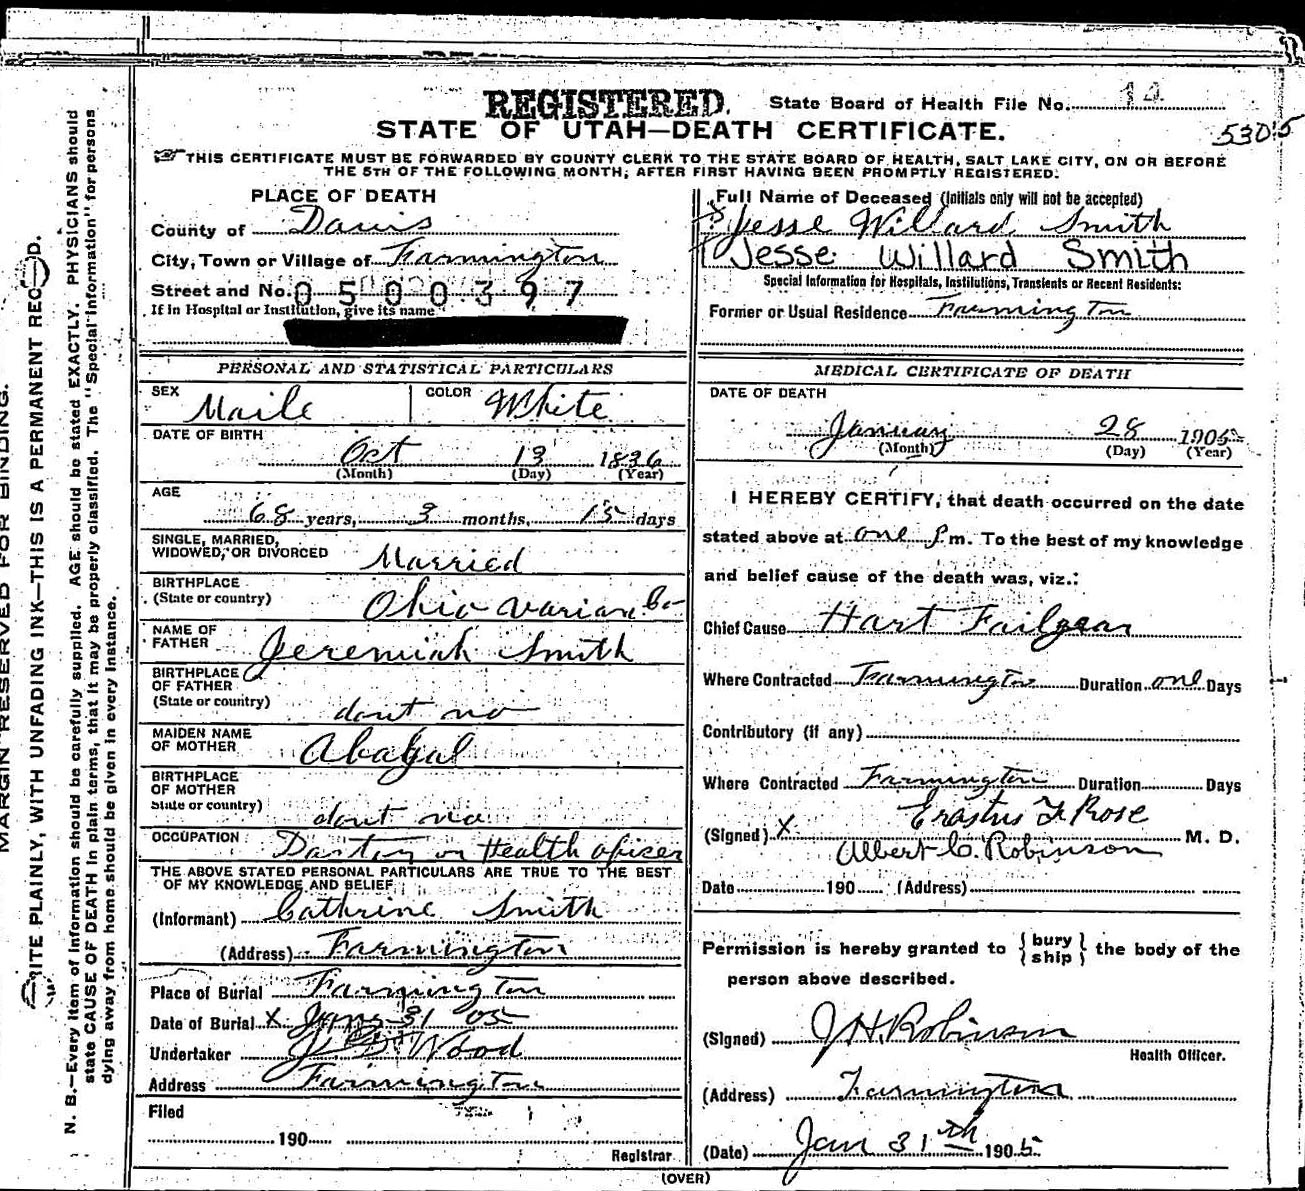 REGISTERED. State Board of Health File No. 14
5305
STATE OF UTAH—DEATH CERTIFICATE.
THIS CERTIFICATE MUST BE FORWARDED BY COUNTY CLERK TO THE STATE BOARD OF HEALTH, SALT LAKE CITY, ON OR BEFORE
THE 5TH OF THE FOLLOWING MONTH, AFTER FIRST HAVING BEEN PROMPTLY REGISTERED.
PLACE OF DEATH
County of Davis
City, Town or Village of Farmington
Street and No. 0500397
If in Hospital or Institution, give its name
PERSONAL AND STATISTICAL PARTICULARS
SEX Maile COLOR White
DATE OF BIRTH
Oct 13 1836
(Month) (Day) (Year)
AGE
68 years, 3 months, 15 days
SINGLE, MARRIED,
WIDOWED, OR DIVORCED Married
BIRTHPLACE
(State or country) Ohio
NAME OF
FATHER Jeremiah Smith
BIRTHPLACE
OF FATHER
(State or country) dont no
MAIDEN NAME
OF MOTHER Abagal
BIRTHPLACE
OF MOTHER
State or country) dont no
OCCUPATION Health oficer
THE ABOVE STATED PERSONAL PARTICULARS ARE TRUE TO THE BEST
OF MY KNOWLEDGE AND BELIEF
(Informant) Cathrine Smith
(Address) Farmington
Place of Burial Farmington
Date of Burial X Jany 31 05
Undertaker J D Wood
Address Farmington
Filed
190
Registrar
Full Name of Deceased (Initials only will not be accepted)
Jesse Willard Smith
Jesse Willard Smith
Special Information for Hospitals, Institutions, Transients or Recent Residents:
Former or Usual Residence Farmington
MEDICAL CERTIFICATE OF DEATH
DATE OF DEATH
January 28 1905
(Month) (Day) (Year)
I HEREBY CERTIFY, that death occurred on the date
stated above at one P m. To the best of my knowledge
and belief cause of the death was, viz.:
Chief Cause Hart Failgear
Where Contracted Farmington Duration one Days
Contributory (if any)
Where Contracted Farmington Duration Days
Erastus F Rose
(Signed) X M. D.
Albert C. Robinson
Date 190 (Address)
Permission is hereby granted to { bury ship } the body of the
person above described.
(Signed) J H Robinson
Health Officer.
(Address) Farmington
(Date) Jan 31th 1905
(OVER)
MARGIN RESERVED FOR BINDING.
RITE PLAINLY, WITH UNFADING INK—THIS IS A PERMANENT RECORD.
N. B.—Every item of information should be carefully supplied. AGE should be stated EXACTLY. PHYSICIANS should
state CAUSE OF DEATH in plain terms, that it may be properly classified. The "Special Information" for persons
dying away from home should be given in every instance.